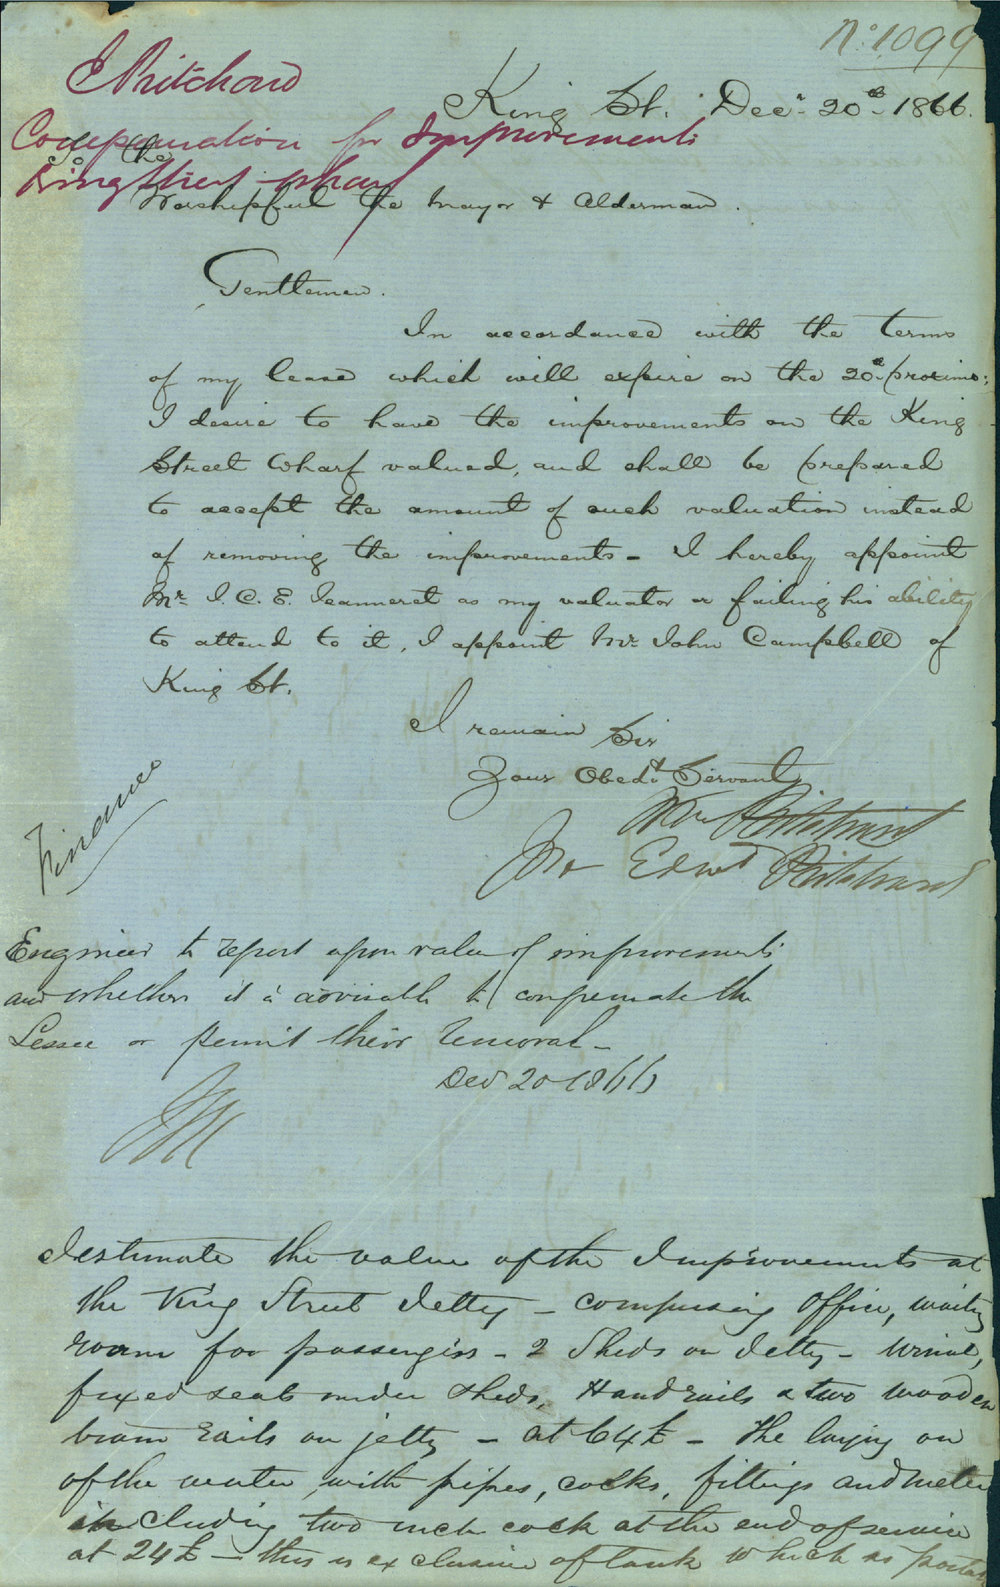 No. 1099
J Pritchard
King St. Decr. 20th 1866.
Compensation for Improvements
To the
King Street Wharf
Worshipful the Mayor & Alderman.
Gentlemen.
In accordance with the terms
of my lease which will expire on the 20th proximo;
I desire to have the improvements on the King
Street Wharf valued, and shall be prepared
to accept the amount of such valuation instead
of removing the improvements - I hereby appoint
Mr. J. C. E. Jeanneret as my valuator or failing his ability
to attend to it, I appoint Mr John Campbell of
King St.
I remain Sir
Your Obedt. Servant
Wm Pritchard
Edwd Pritchard
Finance
Engineer to report upon value of improvements
and whether it is advisable to compensate the
Lessee or permit their removal -
Dec 20 1866
I estimate the value of the Improvements at
the King Street Jetty - comprising office, waiting
room for passengers - 2 Sheds on Jetty - Urinal,
fixed seats under sheds, Handrails & two wooden
tram rails on jetty - at 64£ - The laying on
of the water, with pipes, cocks, fittings and meter
including two inch cock at the end of service
at 24£ - this is exclusive of tank which is